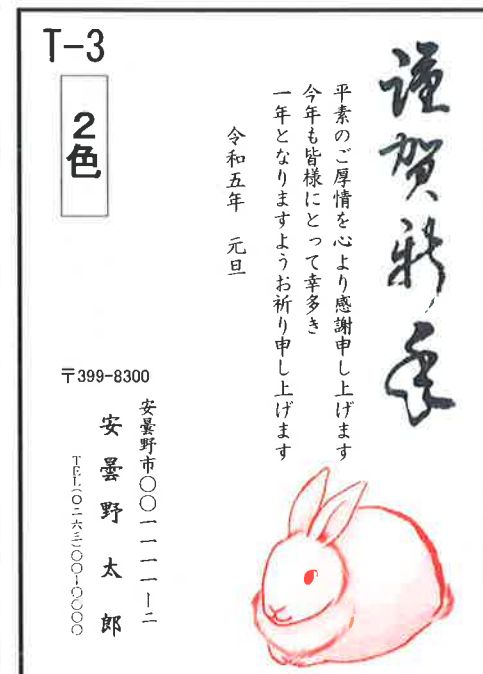 T-3
2色
謹賀新年
平素のご厚情を心より感謝申し上げます
今年も皆様にとって幸多き
一年となりますようお祈り申し上げます
令和五年 元旦
〒399-8300
安曇野市〇〇一一一一ー二
安曇野太郎
TEL(〇二六三)〇〇ー〇〇〇〇